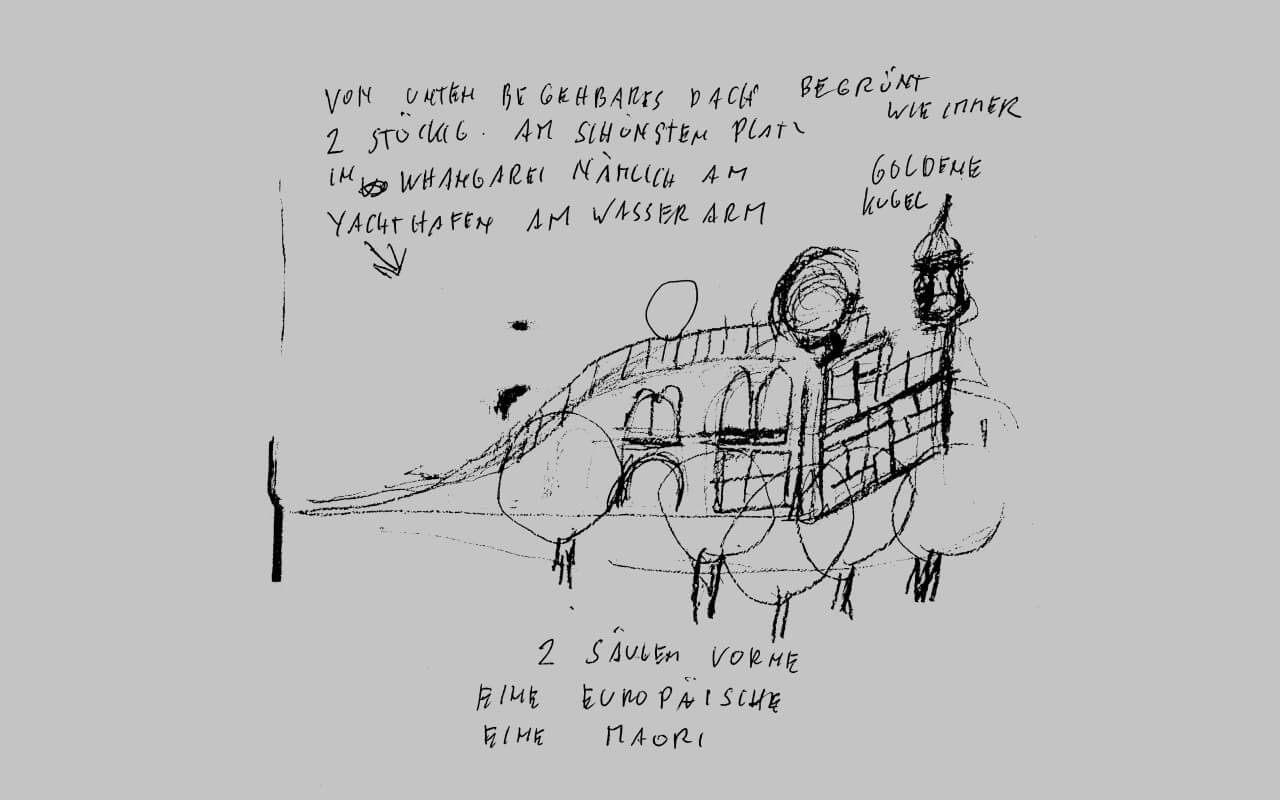 VON UNTEN BEGEHBARES DACH BEGRÜNT
WIE IMMER
2 STÖCKIG. AM SCHÖNSTEN PLATZ
IN WHANGAREI NÄMLICH AM
YACHTHAFEN AM WASSERARM
GOLDENE
KUGEL
2 SÄULEN VORNE
EINE EUROPÄISCHE
EINE MAORI